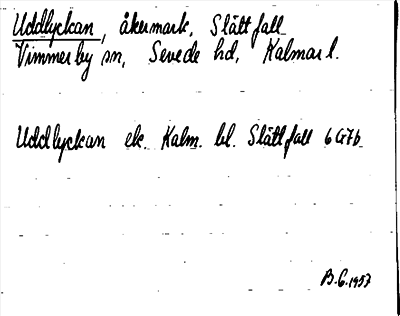 Uddlyckan, åkermark, Slättfall
Vimmerby sn, Sevede hd, Kalmar l.
Uddlyckan ek. Kalm. bl. Slättfall 6G7b
B.G. 1957